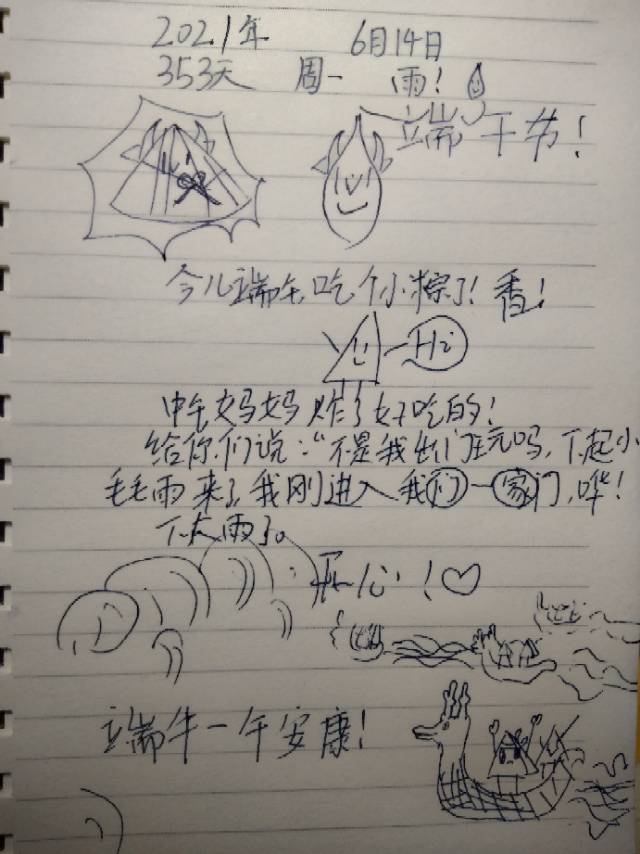 2021年 6月14日
353天 周一 雨!
端午节!
今儿端午,吃个小粽子!香!
Hi
中午妈妈炸了好吃的!
给你们说:"不是我出门玩吗,下起小
毛毛雨来了,我刚进入我们一家门,哗!
下大雨了。
开心!♡
端午一午安康!